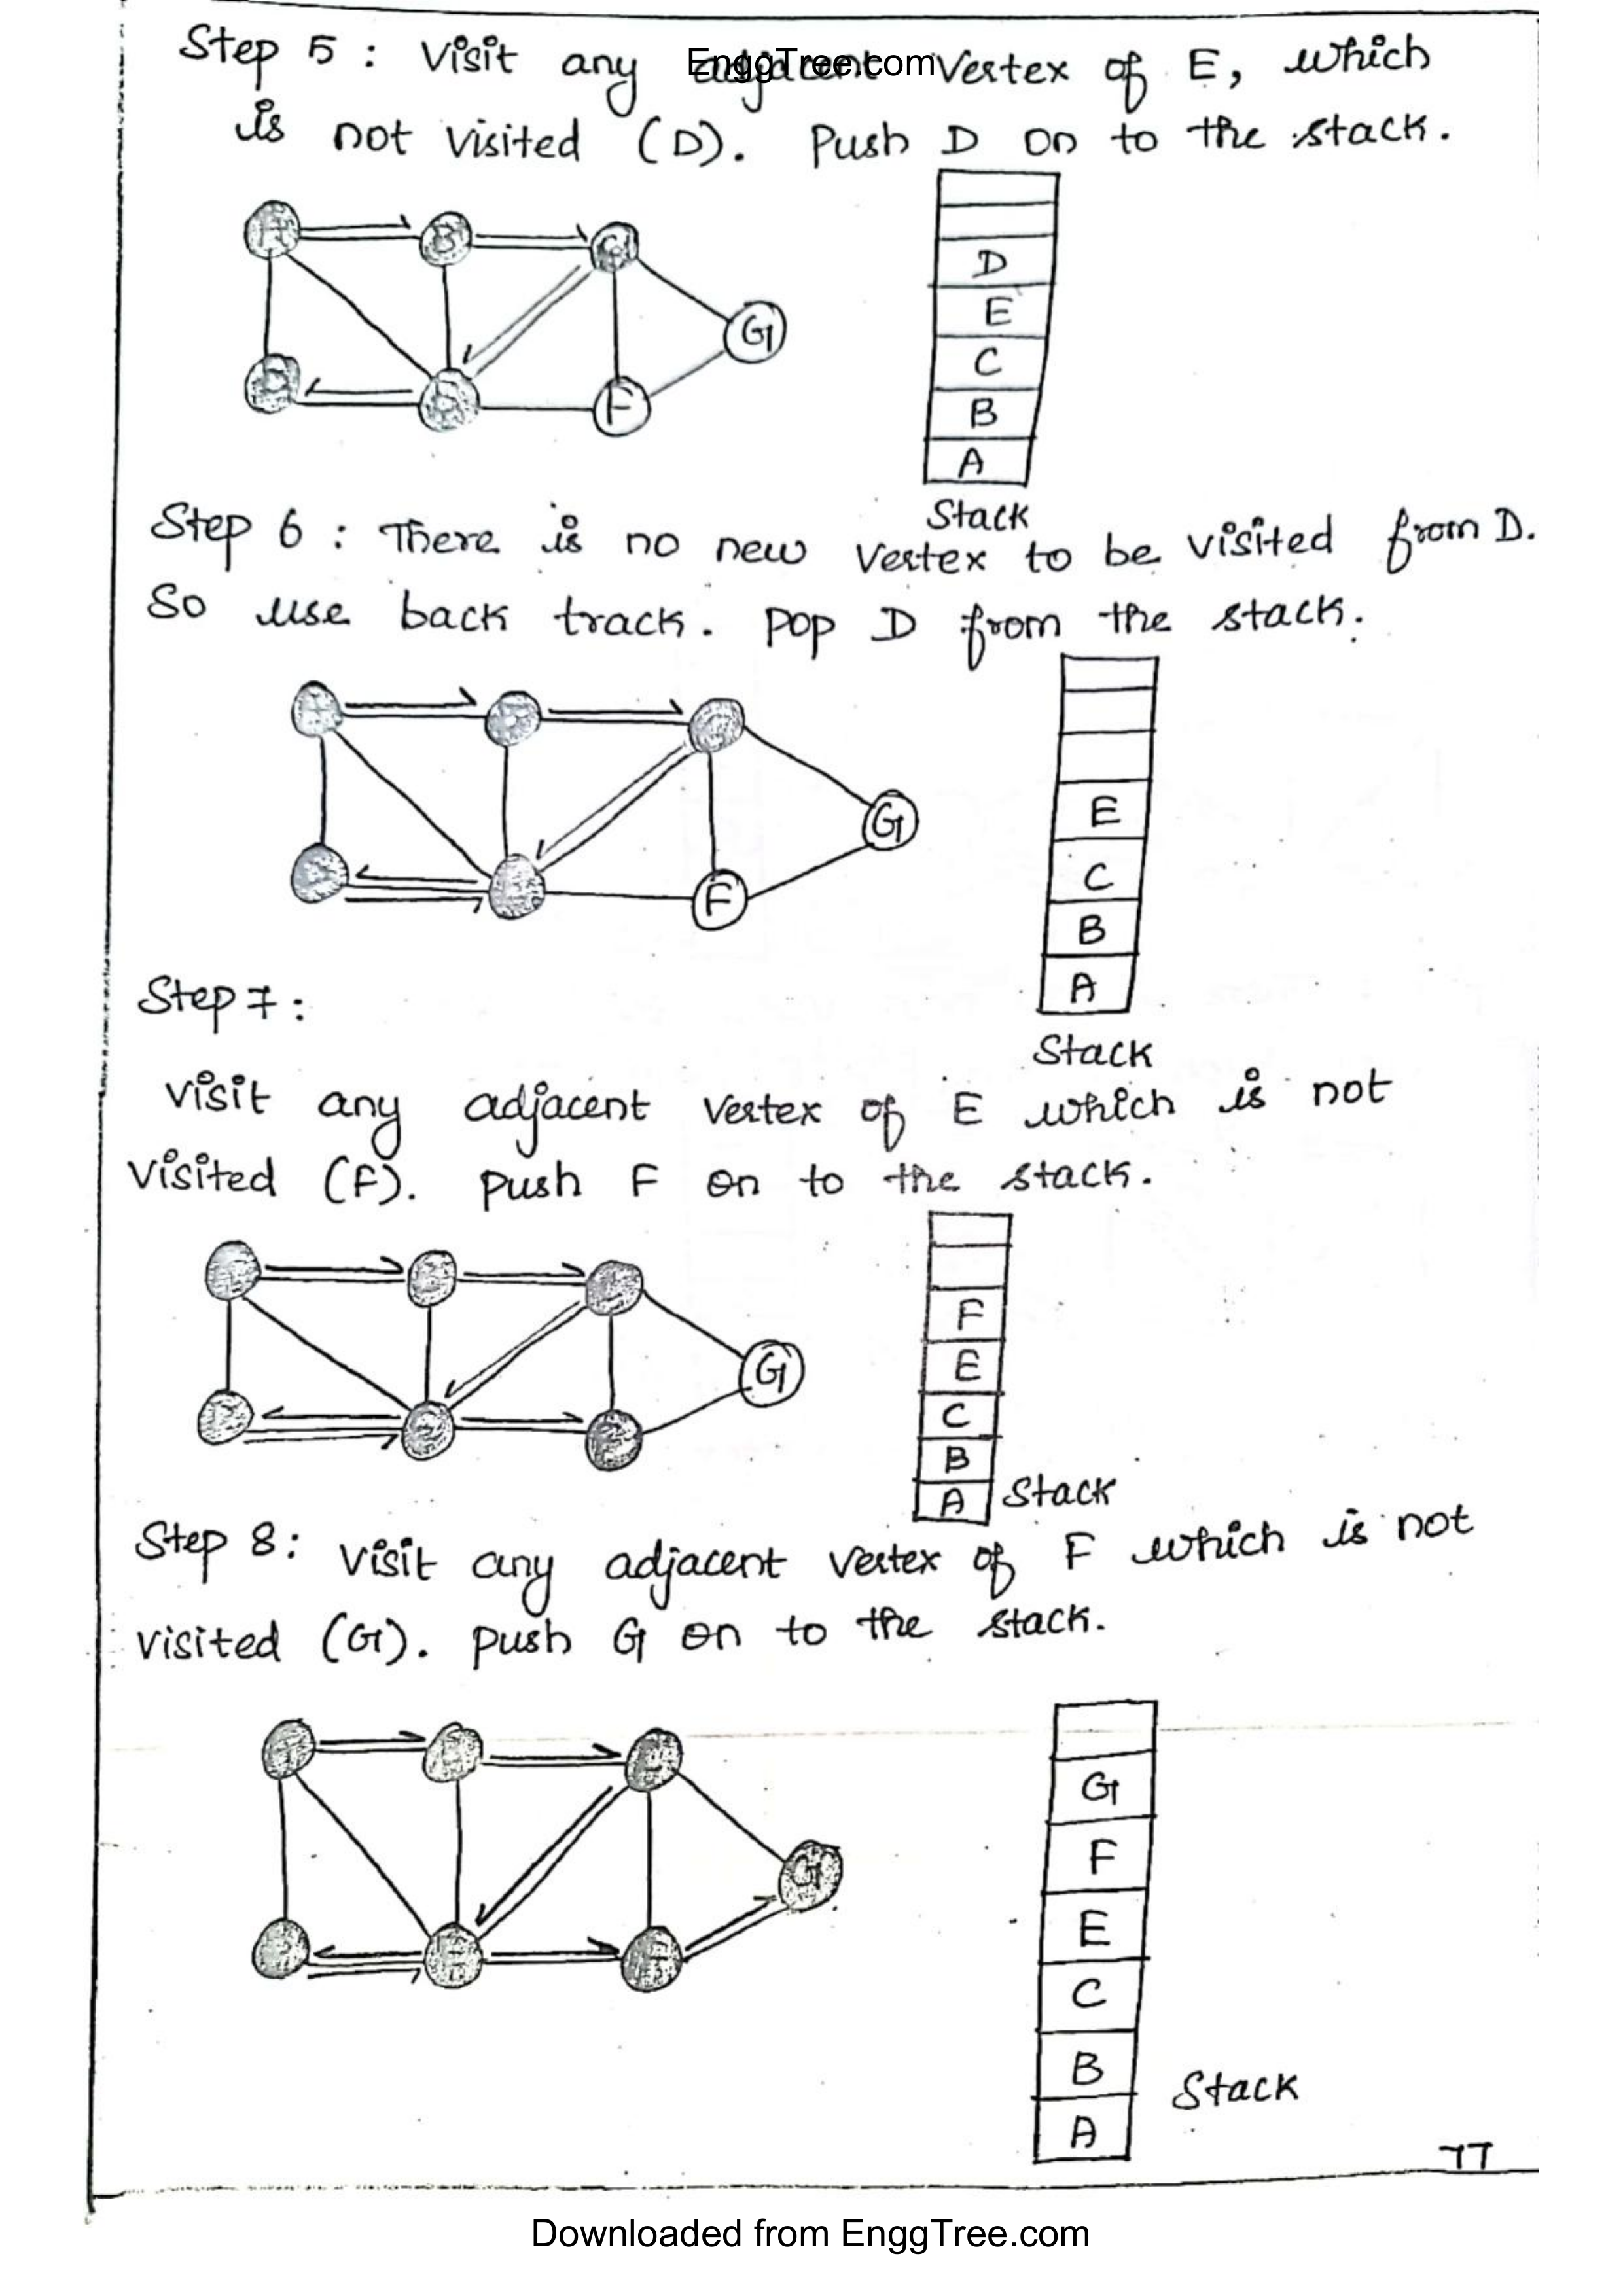 EnggTree.com
Step 5 : Visit any adjacent Vertex of E, which
is not visited (D). Push D on to the stack.
A B C
G
D E F
D
E
C
B
A
Stack
Step 6 : There is no new Vertex to be visited from D.
So use back track. Pop D from the stack.
G
F
E
C
B
A
Stack
Step 7 :
Visit any adjacent Vertex of E which is not
Visited (F). Push F on to the stack.
G
F
E
C
B
A Stack
Step 8 : Visit any adjacent Vertex of F which is not
visited (G). Push G on to the stack.
G
E
G
F
E
C
B
A
Stack
77
Downloaded from EnggTree.com